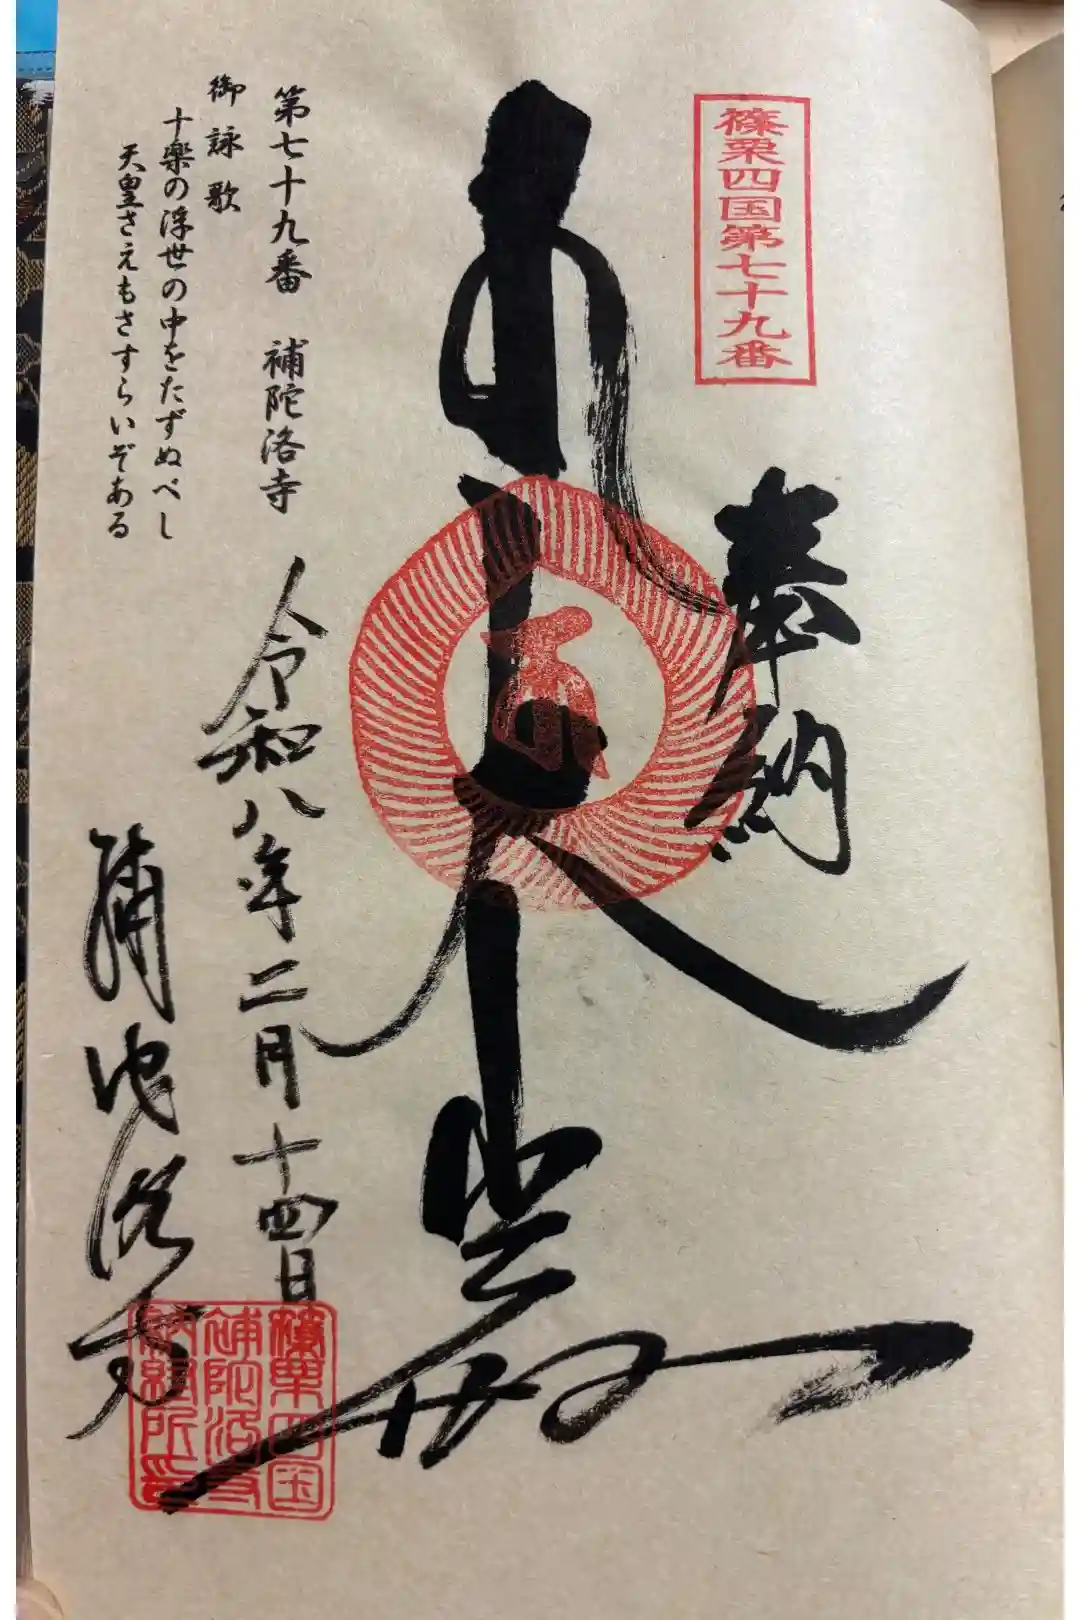 篠栗四国第七十九番
奉納
第七十九番 補陀洛寺
御詠歌
十楽の浮世の中をたずぬべし
天皇さえもさすらいぞある
令和八年二月十四日
補陀洛寺
篠栗四国
補陀洛寺
納経所印